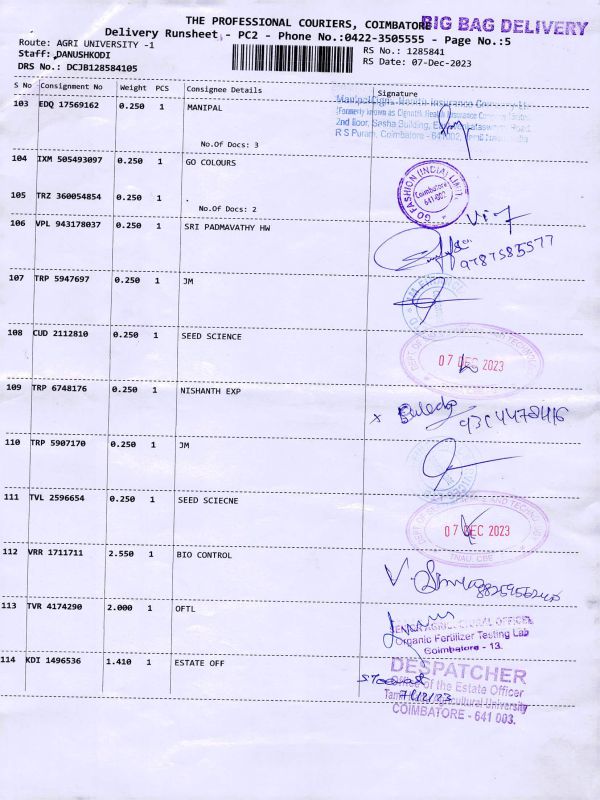 THE PROFESSIONAL COURIERS, COIMBATORE BIG BAG DELIVERY
Delivery Runsheet - PC2 - Phone No.:0422-3505555 - Page No.:5
Route: AGRI UNIVERSITY -1
RS No.: 1285841
Staff: DANUSHKODI
RS Date: 07-Dec-2023
DRS No.: DCJB128584105
S No Consignment No Weight PCS Consignee Details Signature
103 EDQ 17569162 0.250 1 MANIPAL
No.Of Docs: 3
2nd floor, Sasha Building,
R S Puram, Coimbatore - 641002,
104 IXM 505493097 0.250 1 GO COLOURS
GO FASHION (INDIA) LIMITED
Coimbatore
641 002
105 TRZ 360054854 0.250 1 .
No.Of Docs: 2
106 VPL 943178037 0.250 1 SRI PADMAVATHY HW
107 TRP 5947697 0.250 1 JM
108 CUD 2112810 0.250 1 SEED SCIENCE
07 DEC 2023
109 TRP 6748176 0.250 1 NISHANTH EXP
110 TRP 5907170 0.250 1 JM
111 TVL 2596654 0.250 1 SEED SCIECNE
07 DEC 2023
TNAU, CBE
112 VRR 1711711 2.550 1 BIO CONTROL
113 TVR 4174290 2.000 1 OFTL
SENIOR AGRICULTURAL OFFICER
Organic Fertilizer Testing Lab
Coimbatore - 13.
114 KDI 1496536 1.410 1 ESTATE OFF
DESPATCHER
Office of the Estate Officer
Tamil Nadu Agricultural University
7/12/23
COIMBATORE - 641 003.